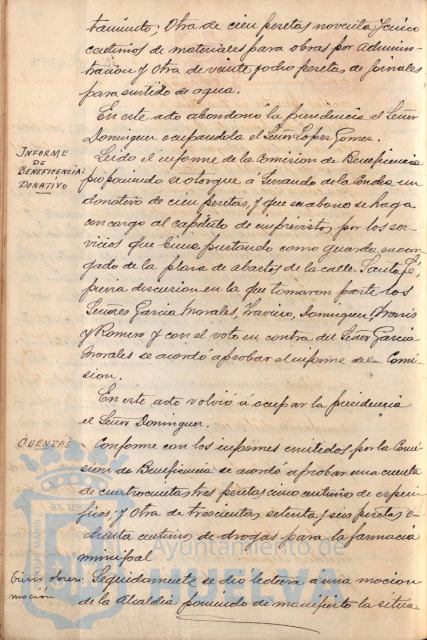 tamiento; Otra de cien pesetas noventa y cinco
centimos de materiales para obras por Adminis-
tracion y Otra de veinte y ocho pesetas de jornales
para surtido de agua.
En este acto abandonó la presidencia el Señor
Dominguez ocupandola el Señor Lopez Gomez.
INFORME
DE
BENEFICENCIA:
DONATIVO
Leido el informe de la Comision de Beneficencia
proponiendo se otorgue á Servando de la Concha un
donativo de cien pesetas, y que su abono se haga
con cargo al capitulo de imprevistos, por los ser-
vicios que viene prestando como guarda encar
gado de la plaza de abastos de la calle Santa Fé,
previa discusion en la que tomaron parte los
Señores Garcia Morales, Traviero, Dominguez,
y Romero y con el voto en contra del Señor Garcia
Morales se acordó aprobar el informe de la Comi-
sion.
En este acto volvió á ocupar la presidencia
el Señor Dominguez.
CUENTAS
Conforme con los informes emitidos por la Comi-
sion de Beneficencia se acordó aprobar una cuenta
de cuatrocientas tres pesetas un centimo de especi-
ficos; y Otra de trescientas setenta y seis pesetas o-
chenta centimos de drogas para la farmacia
municipal
Seguidamente se dió lectura a una mocion
de la Alcaldia poniendo de manifiesto la situa-
Ayuntamiento de
HUELVA